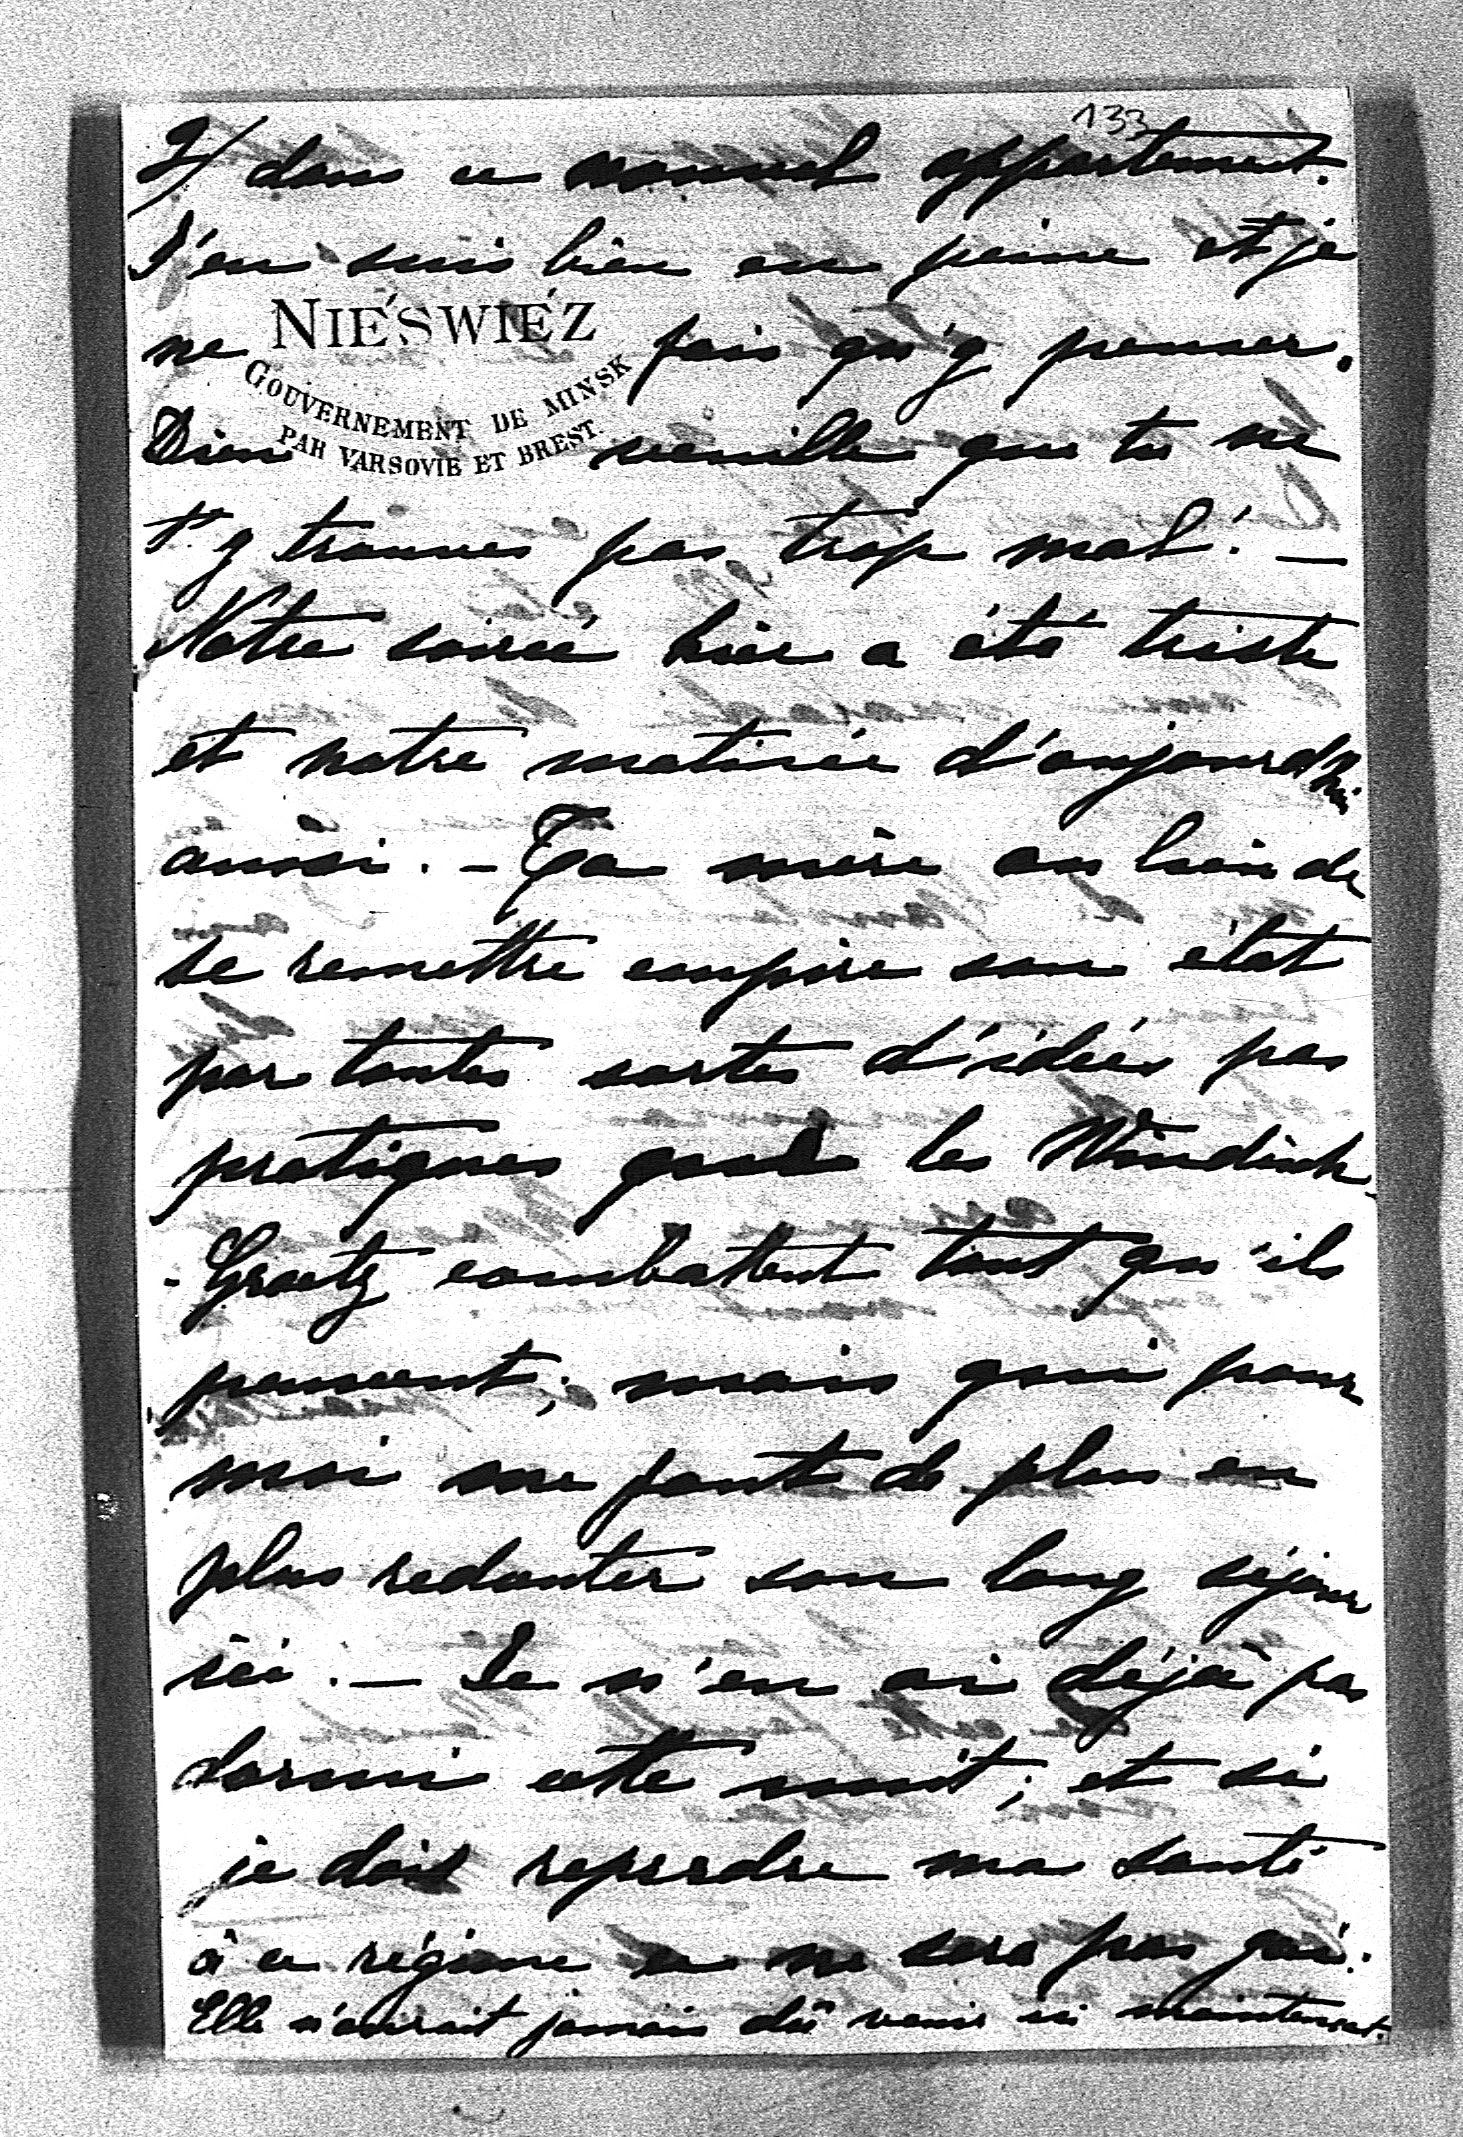 133
2/ dans ce nouvel appartement.
J'en suis bien en peine et je
NIEŚWIEŻ
ne fais qu'y penser.
GOUVERNEMENT DE MINSK
PAR VARSOVIE ET BREST.
Dieu veuille que tu ne
t'y trouves pas trop mal! —
Notre soirée hier a été triste
et notre matinée d'aujourd'hui
aussi. — Ta mère au lieu de
se remettre empire son état
par toutes sortes d'idées pas
pratiques que les Windisch
-Graetz combattent tant qu'ils
peuvent; mais qui pour
moi me font de plus en
plus redouter son long séjour
ici. — Je n'en ai déjà pas
dormi cette nuit; et si
je dois reperdre ma santé
à ce régime ce ne sera pas gai.
Elle n'aurait jamais dû venir ici maintenant.